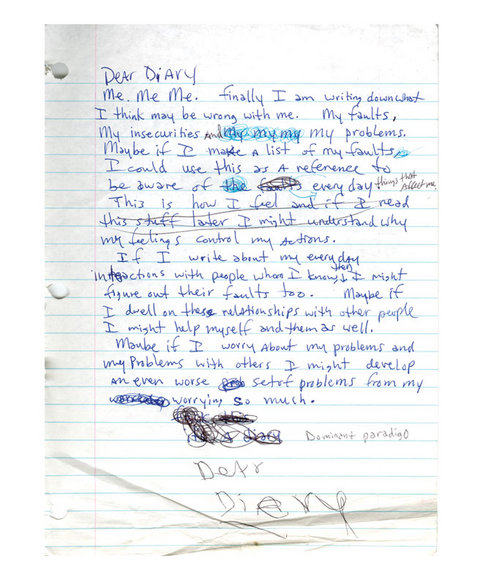 Dear Diary
Me. Me Me. finally I am writing down what
I think may be wrong with me. My faults,
My insecurities and my my my my problems.
Maybe if I make a list of my faults
I could use this as a reference to
be aware of the faults every day things that affect me,
This is how I feel and if I read
this stuff later I might understand why
my feelings control my actions.
If I write about my every day
interactions with people whom I know, then I might
figure out their faults too. Maybe if
I dwell on these relationships with other people
I might help myself and them as well.
Maybe if I worry about my problems and
my problems with others I might develop
an even worse set of problems from my
worrying so much.
Dominant paradigo
Dear
Diery